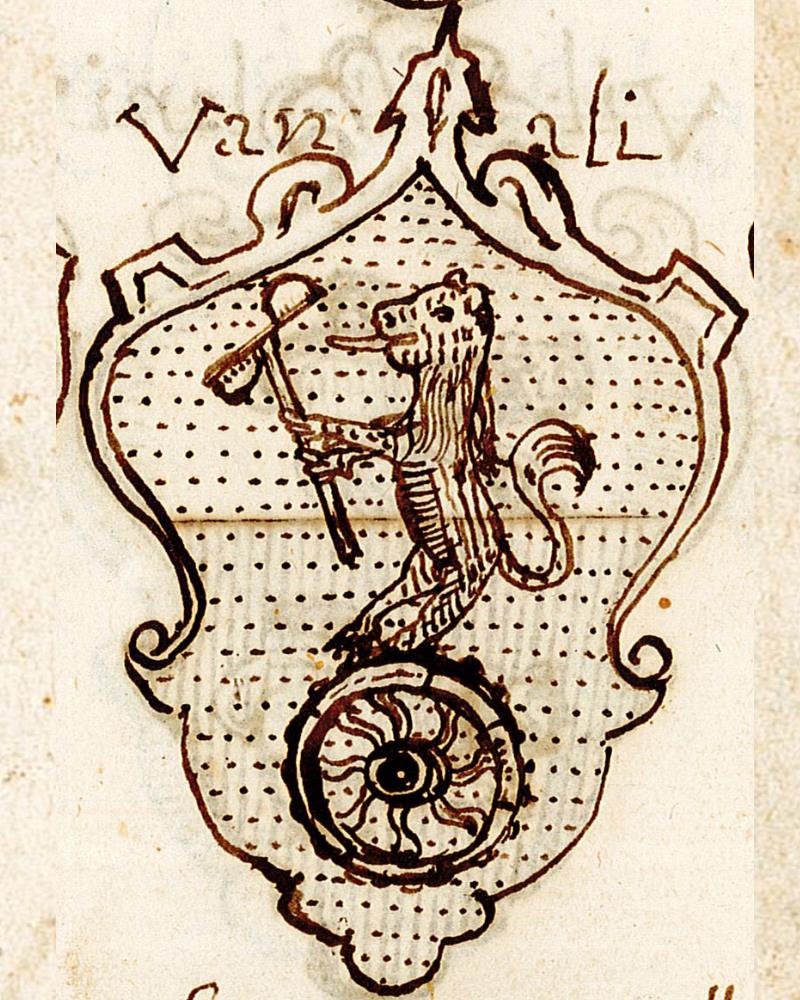 Van ali